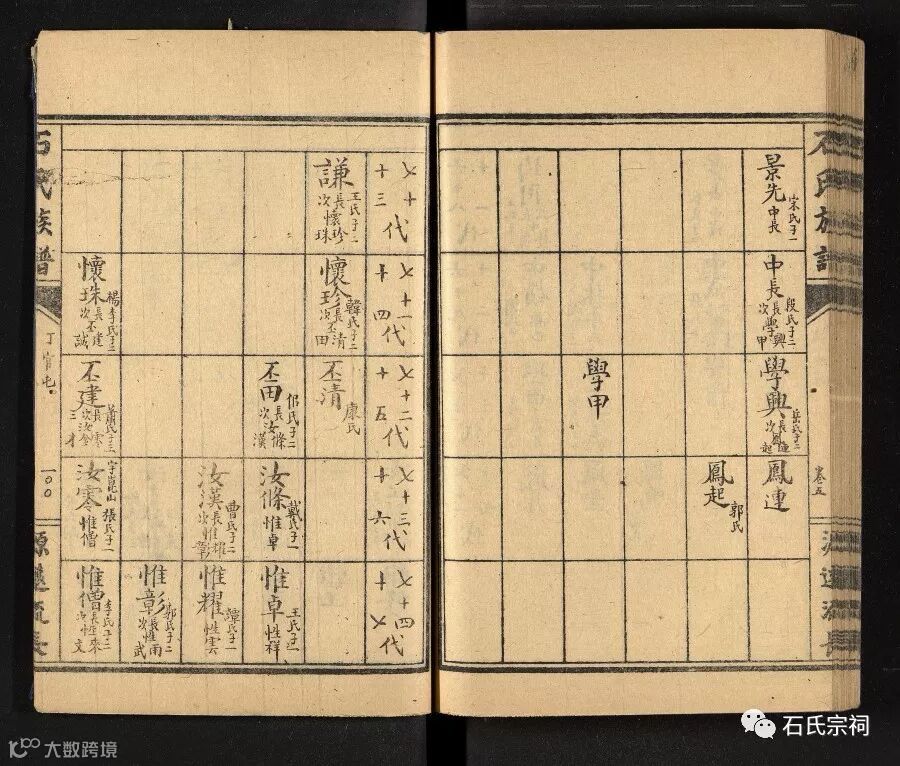 石氏族譜
卷五
源遠流長
景先 宋氏子一 中長
中長 段氏子二 長學興 次學甲
學興 岳氏子二 長鳳連 次鳳起
學甲
鳳連
鳳起 郭氏
十三 乂十代
十四 乂十一代
十五 乂十二代
十六 乂十三代
十乂 乂十四代
謙 王氏子二 長懷珍 次懷珠
懷珍 韓氏子二 長丕清 次丕田
懷珠 楊李氏子二 長丕建 次丕誠
丕清 康氏
丕田 邵氏子二 長汝條 次汝漢
丕建 蕭氏子三 長汝零 次汝
汝條 戴氏子一 惟卓
汝漢 曹氏子二 長惟耀 次惟彰
汝零 字崑山 張氏子一 惟僧
惟卓 王氏子一 性祥
惟耀 譚氏子一 性雲
惟彰 郭氏子二 長性雨 次性武
惟僧 李氏子二 長性來 次性文
石氏族譜
丁官屯
一〇〇
源遠流長
石氏宗祠
大数跨境